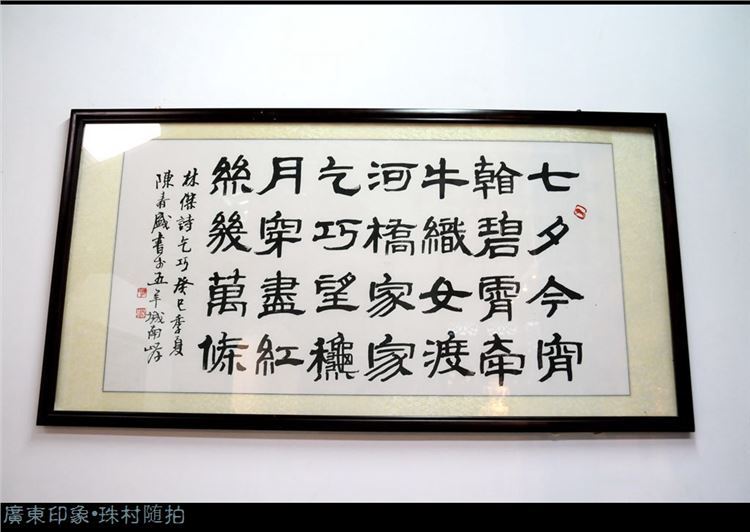 七夕今宵
看碧霄牽
牛織女渡
河橋家家
乞巧望龝
月穿盡紅
絲幾萬條
林傑詩乞巧癸巳季夏
陳春盛書於五羊城南岸
廣東印象•珠村随拍